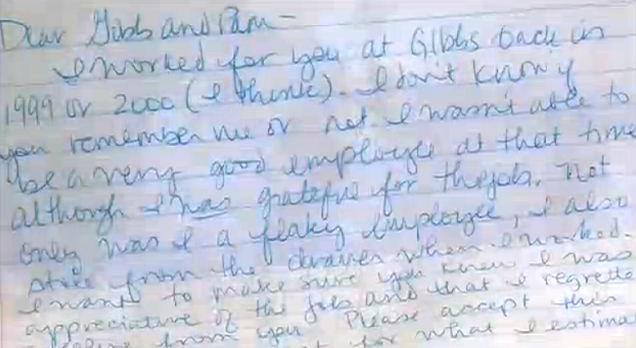 Dear Gibb and Pam -
I worked for you at Gibbs back in
1999 or 2000 (I think). I don't know if
you remember me or not. I wasn't able to
be a very good employee at that time
although I was grateful for the job. Not
only was I a flaky employee, I also
stole from the drawer when I worked.
I want to make sure you knew I was
appreciative of the job and that I regrette
from you. Please accept this
for what I estima